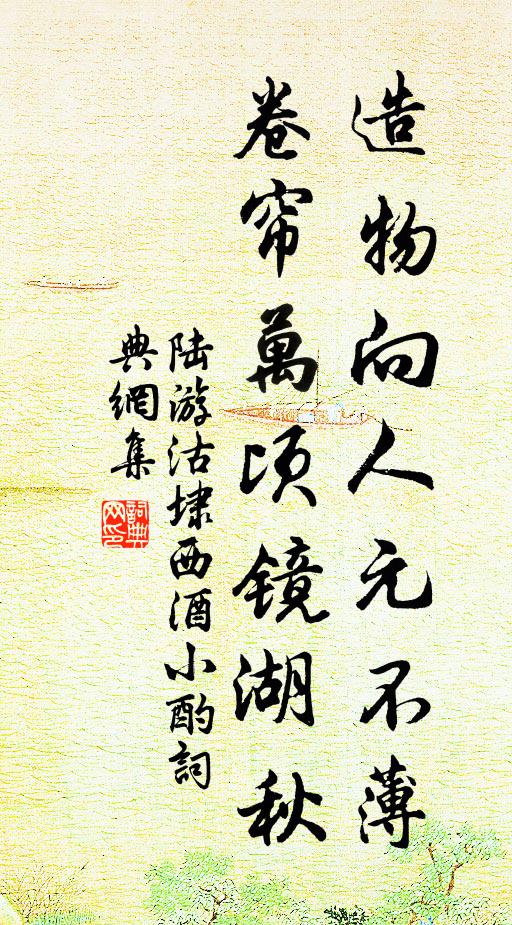 造物向人元不薄
卷帘萬頃镜湖秋
陆游沽埭西酒小酌詞
典網集
詞典网印